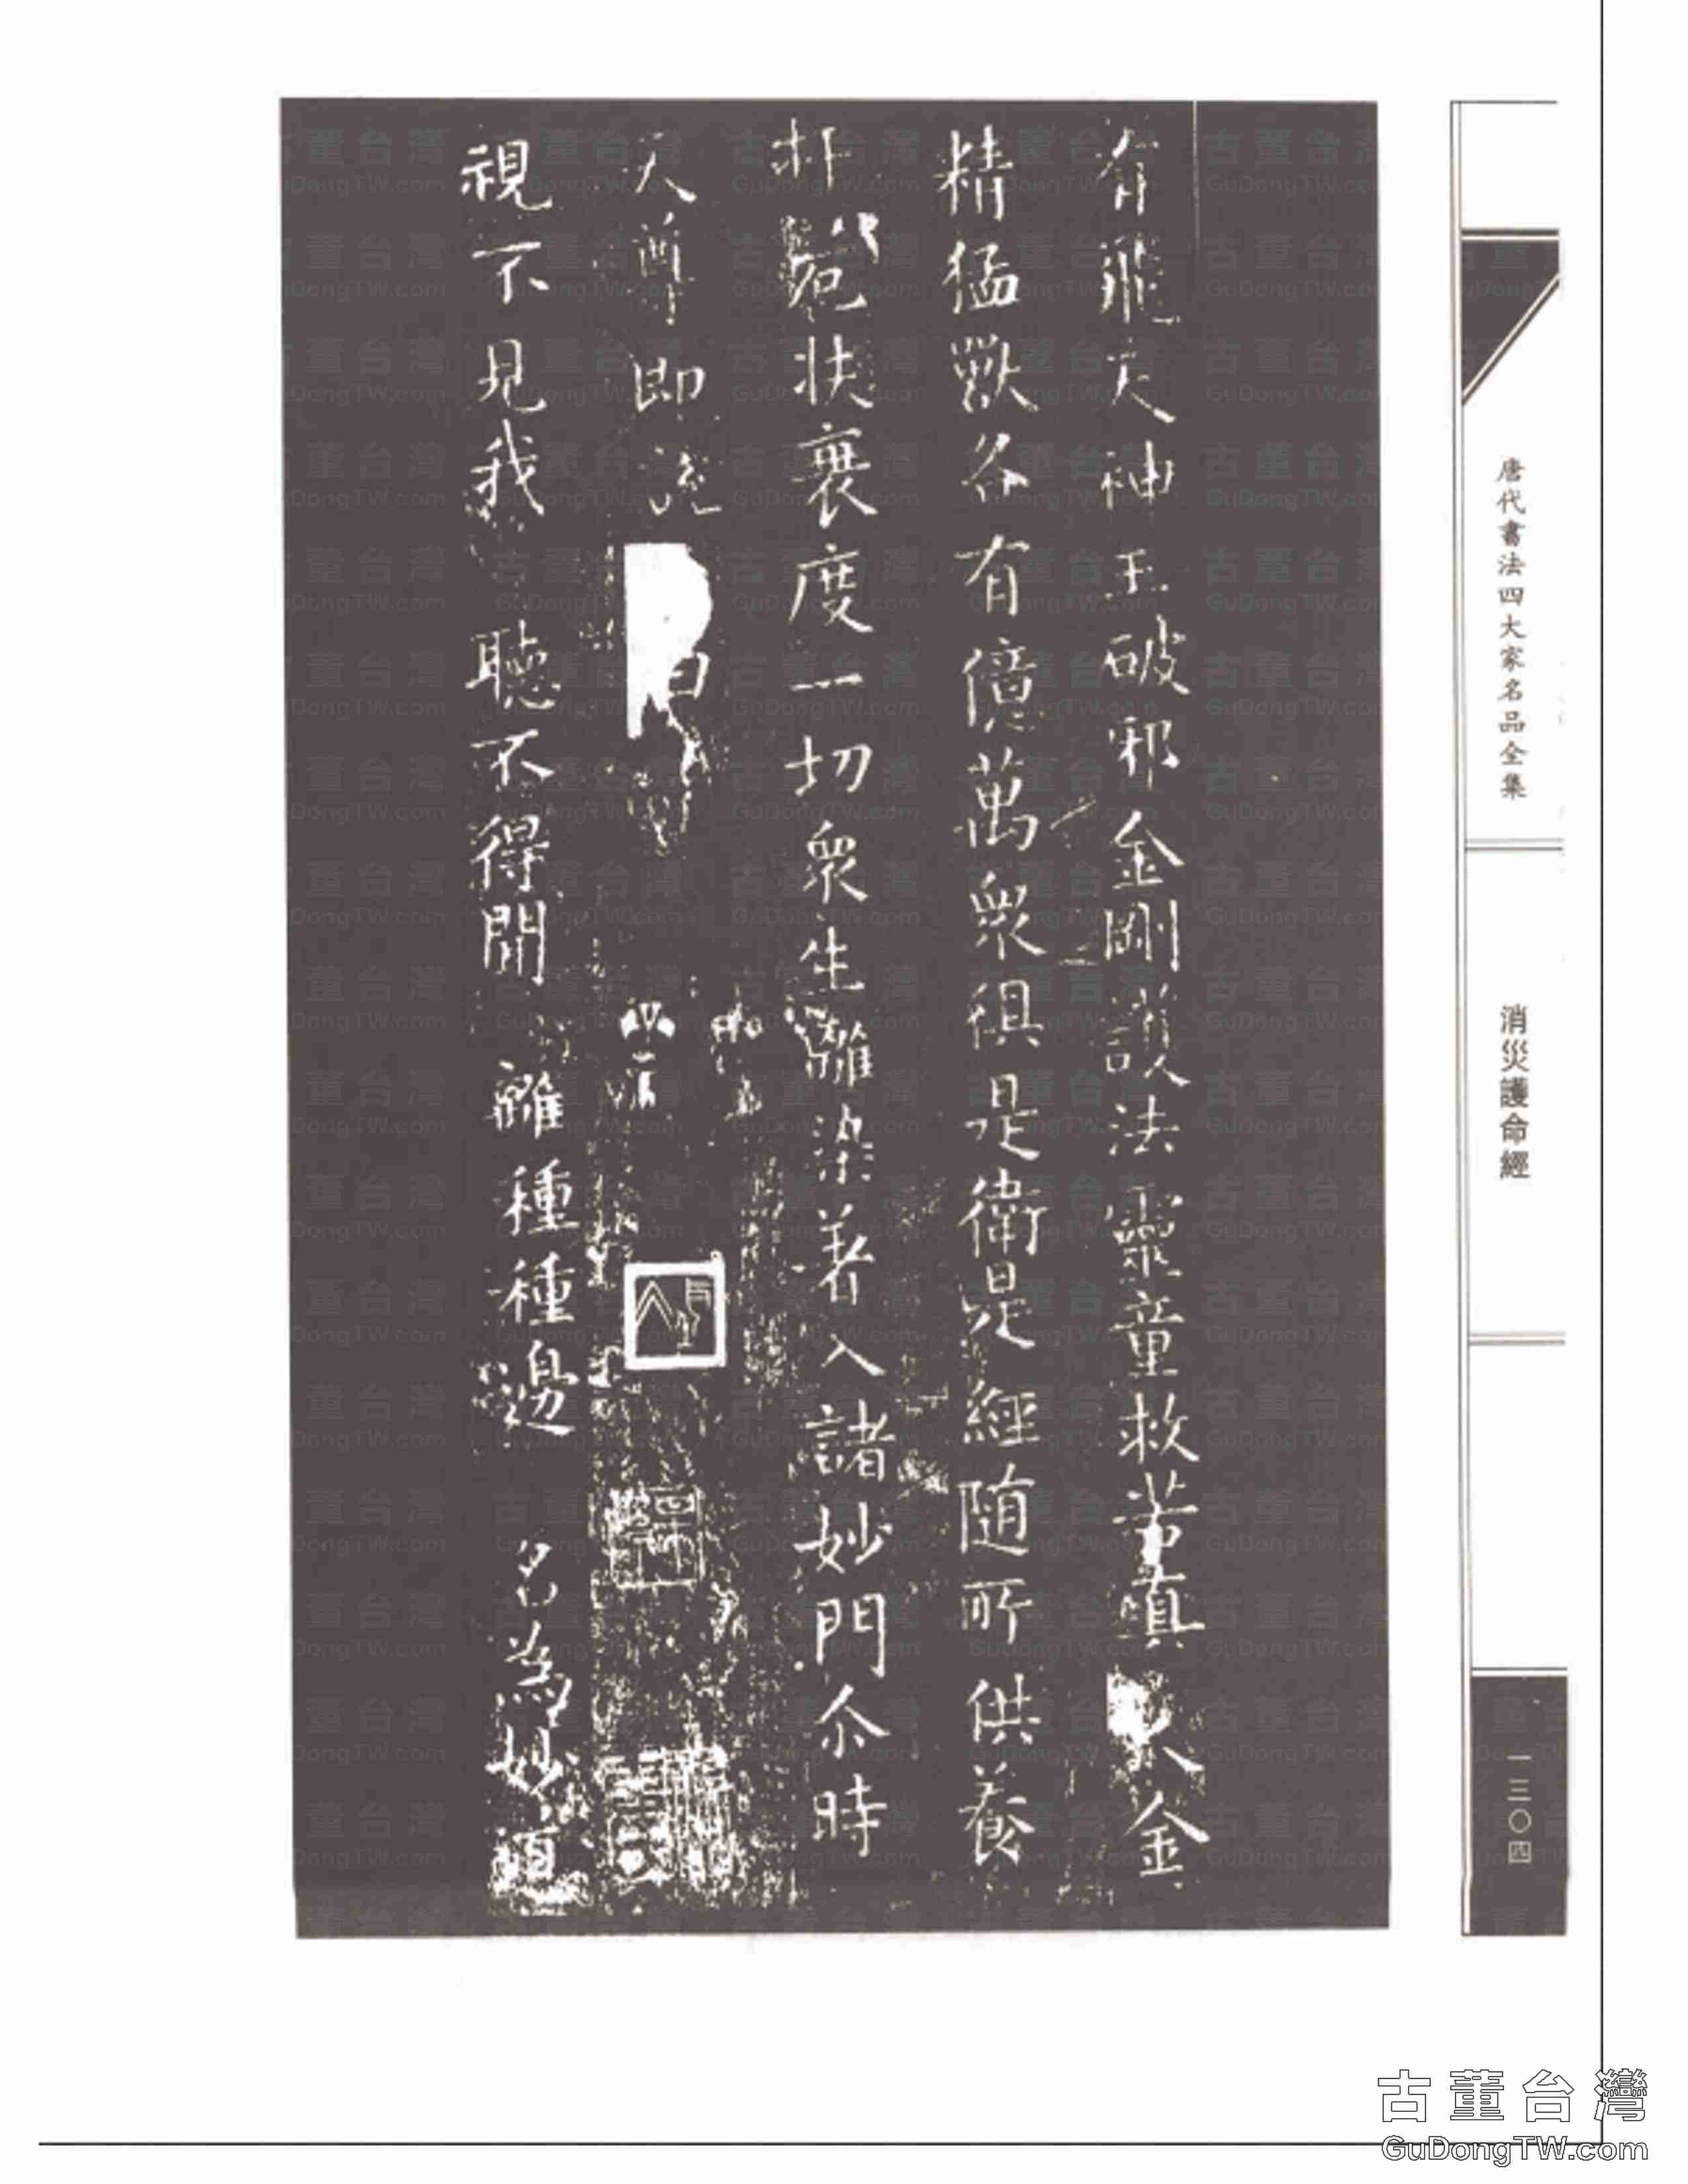 有飛天神王破邪金剛護法靈童救苦真人金
精猛獸各有億萬衆俱是衛是經隨所供養
扞危扶衰度一切衆生離染著入諸妙門尒時
天尊即說
視不見我 聽不得聞 離種種邊 名為妙道
唐代書法四大家名品全集
消災護命經
一三〇四
古董台灣
GuDongTW.com